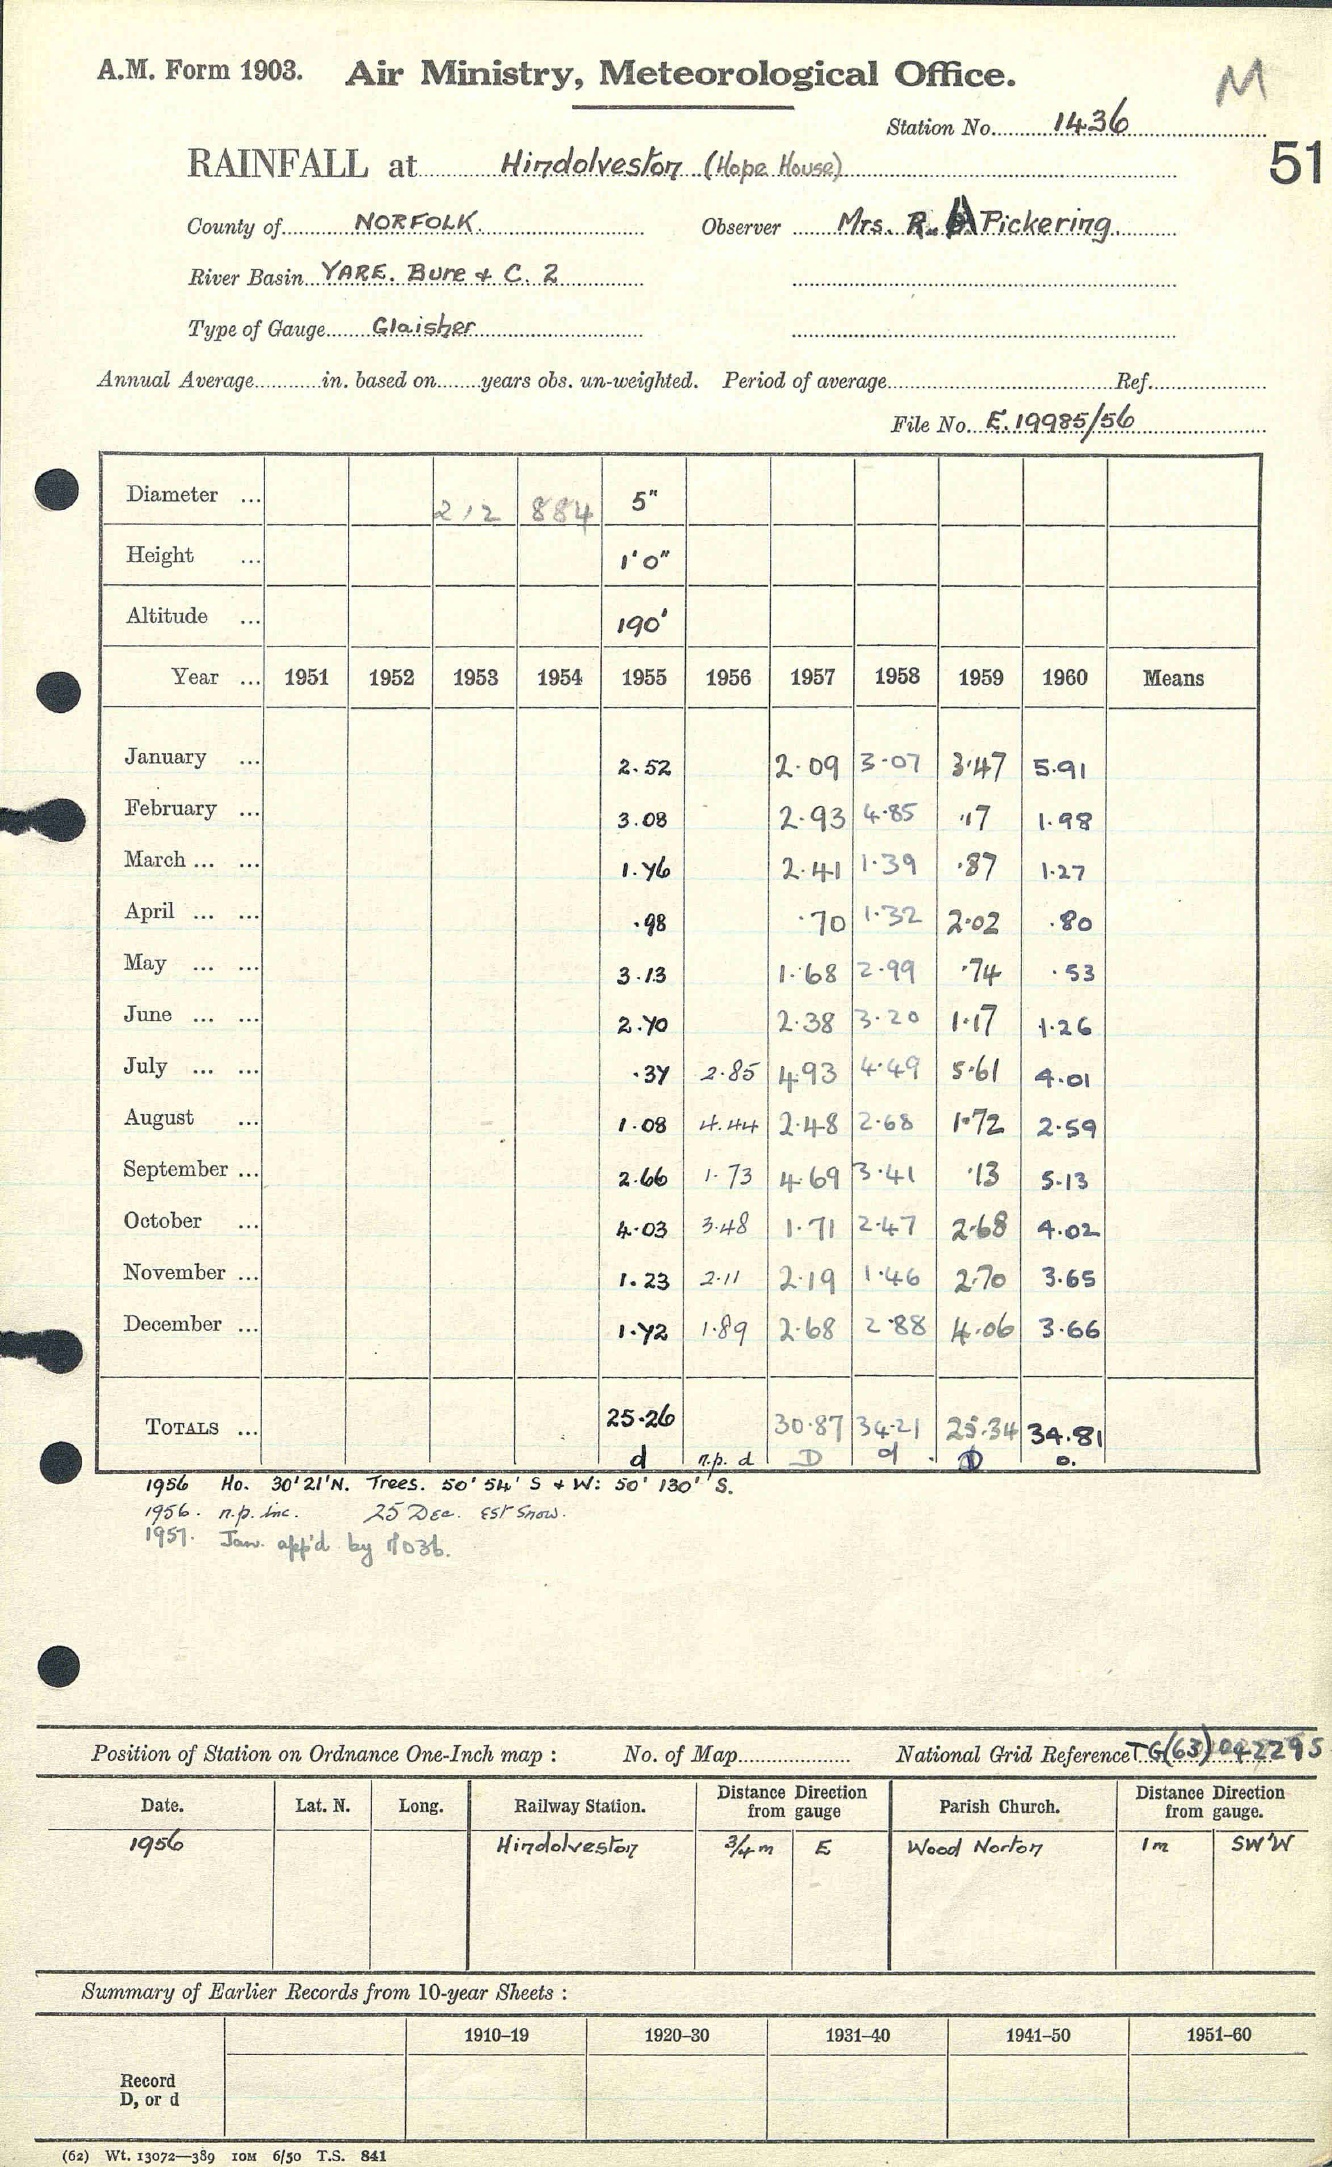 A.M. Form 1903. Air Ministry, Meteorological Office. M
Station No. 1436
51
RAINFALL at Hindolveston (Hope House)
County of NORFOLK. Observer Mrs. R. Pickering.
River Basin YARE. Bure & C. 2
Type of Gauge Glaisher
Annual Average in. based on years obs. un-weighted. Period of average Ref.
File No. E.19985/56
Diameter ... 212 884 5"
Height ... 1'0"
Altitude ... 190'
Year ... 1951 1952 1953 1954 1955 1956 1957 1958 1959 1960 Means
January ... 2.52 2.09 3.07 3.47 5.91
February ... 3.08 2.93 4.85 .17 1.98
March ... ... 1.76 2.41 1.39 .87 1.27
April ... ... .98 .70 1.32 2.02 .80
May ... ... 3.13 1.68 2.99 .74 .53
June ... ... 2.70 2.38 3.20 1.17 1.26
July ... ... .37 2.85 4.93 4.49 5.61 4.01
August ... 1.08 4.44 2.48 2.68 1.72 2.59
September ... 2.66 1.73 4.69 3.41 .13 5.13
October ... 4.03 3.48 1.71 2.47 2.68 4.02
November ... 1.23 2.11 2.19 1.46 2.70 3.65
December ... 1.72 1.89 2.68 2.88 4.06 3.66
TOTALS ... 25.26 30.87 34.21 25.34 34.81
d n.p. d D d D
1956 Ho. 30'21'N. Trees. 50' 54' S & W: 50' 130' S.
1956. n.p. inc. 25 Dec. Est Snow.
1957. Jan. app'd by M03b.
Position of Station on Ordnance One-Inch map : No. of Map National Grid Reference TG(63)042295
Date. Lat. N. Long. Railway Station. Distance Direction from gauge Parish Church. Distance Direction from gauge.
1956 Hindolveston 3/4 m E Wood Norton 1m SW'W
Summary of Earlier Records from 10-year Sheets :
1910–19 1920–30 1931–40 1941–50 1951–60
Record
D, or d
(62) Wt. 13072—389 10M 6/50 T.S. 841